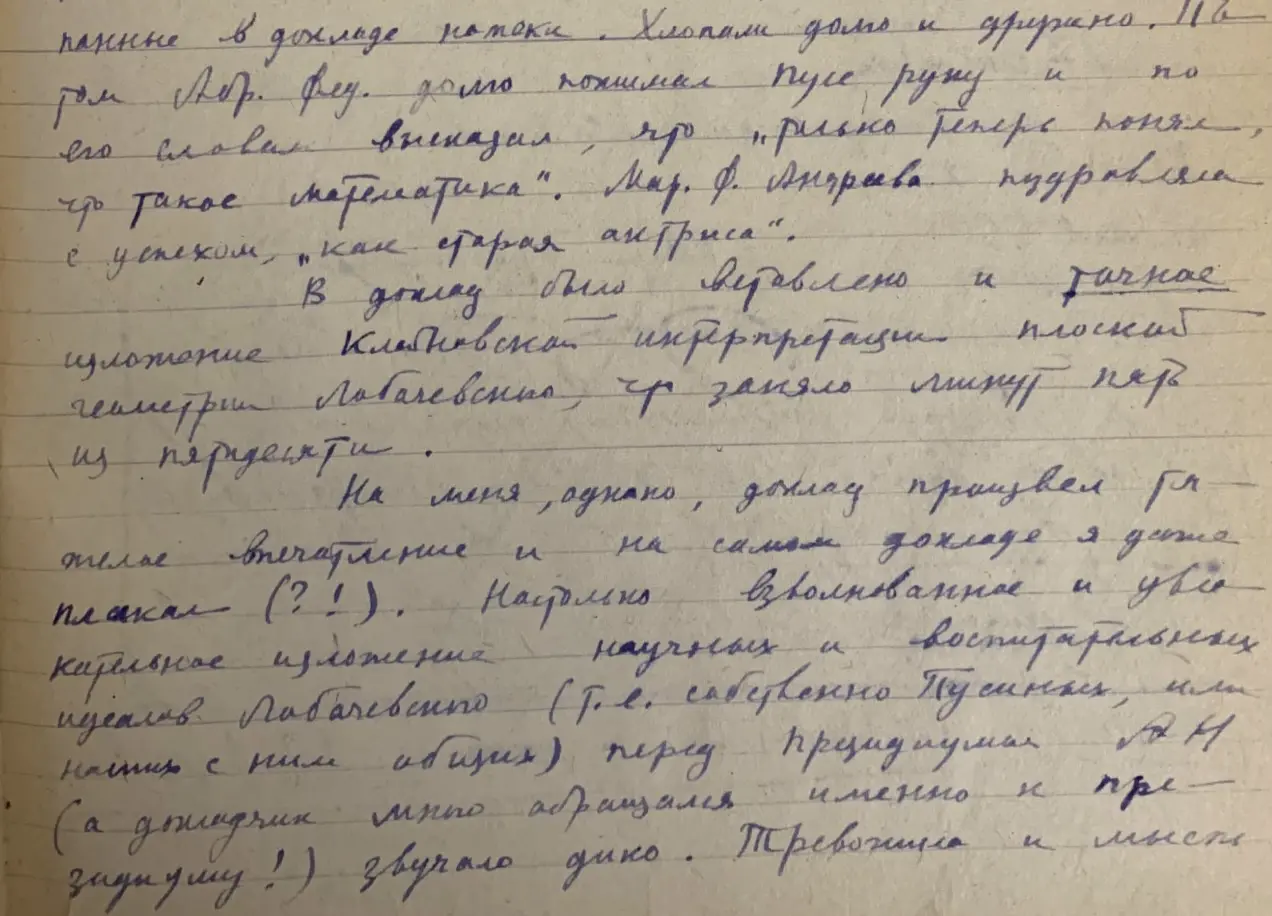 панные в докладе намеки. Хлопали долго и дружно. По
том Абр. Фед. долго пожимал Пусе руку и по
его словам высказал, что „только теперь понял,
что такое математика“. Мар. Ф. Андреева поздравляла
с успехом, „как старая актриса“.
В доклад было вставлено и точное
изложение Клейновской интерпретации плоской
геометрии Лобачевского, что заняло минут пять
из пятидесяти.
На меня, однако, доклад произвел тя-
желое впечатление и на самом докладе я даже
плакал (?!). Настолько взволнованное и увле
кательное изложение научных и воспитательных
идеалов Лобачевского (т.е. собственно Пусиных, или
наших с ним общих) перед Президиумом АН
(а докладчик много обращался именно к пре-
зидиуму!) звучало дико. Тревожила и мысль